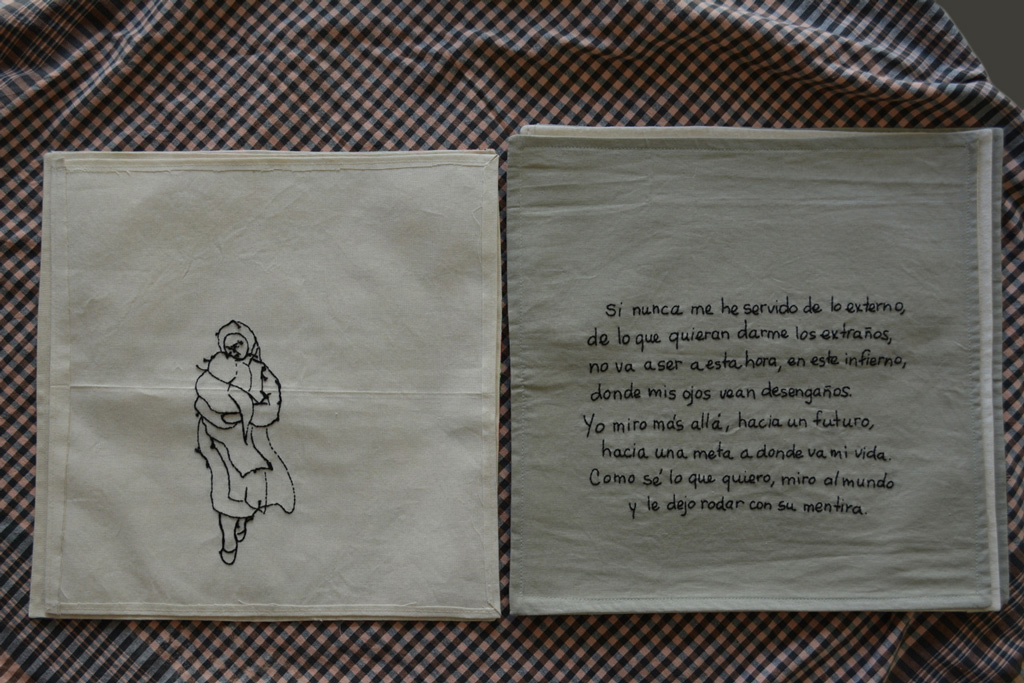 Si nunca me he servido de lo externo,
de lo que quieran darme los extraños,
no va a ser a esta hora, en este infierno,
donde mis ojos vean desengaños.
Yo miro más allá, hacia un futuro,
hacia una meta a donde va mi vida.
Como sé lo que quiero, miro al mundo
y le dejo rodar con su mentira.